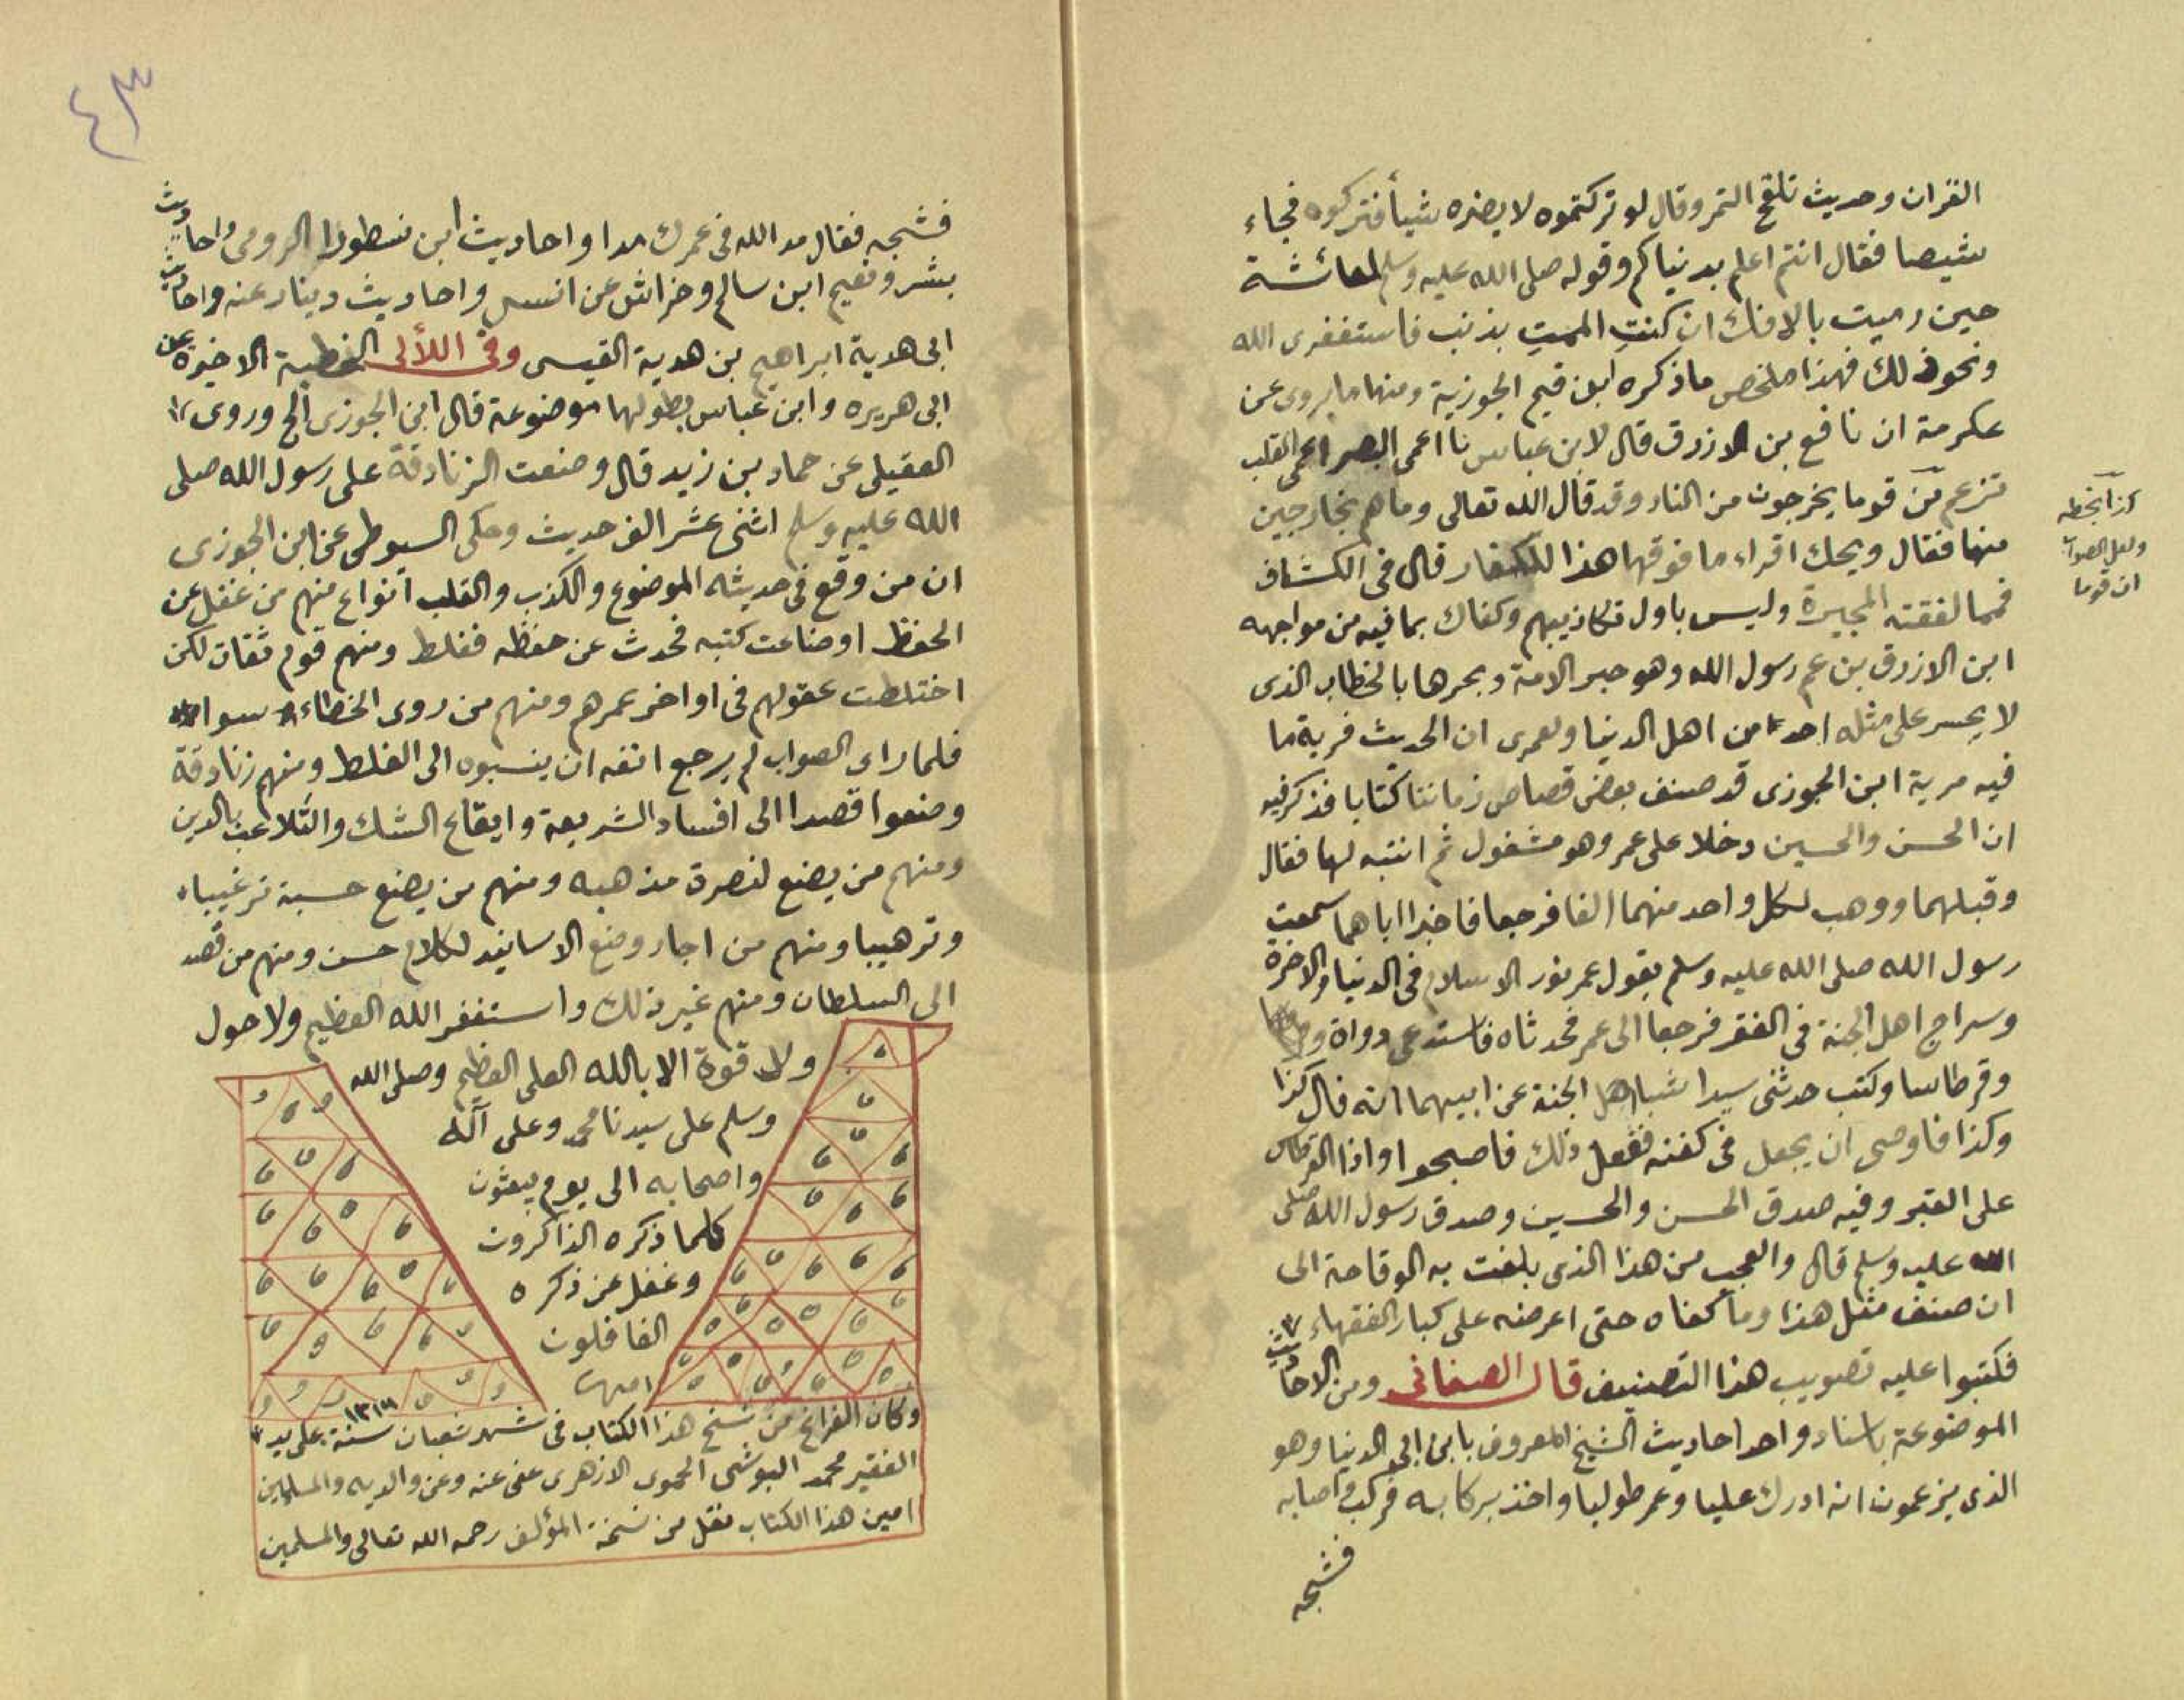 القران وحديث تلقح التمر وقال لو تركتموه لا يضره شيأ فتركوه فجاء
شيصا فقال انتم اعلم بدنياكم وقوله صلى الله عليه وسلم لعائشة
حين رميت بالافك ان كنت الممت بذنب فاستغفرى الله
ونحو ذلك فهذا ملخص ما ذكره ابن قيم الجوزية ومنها ما يروى عن
عكرمة ان نافع بن الازرق قال لابن عباس يا اعمى البصر اعمى القلب
تزعم ان قوما يخرجون من النار وقد قال الله تعالى وما هم بخارجين
منها فقال ويحك اقراء ما فوقها هذا للكفار قال فى الكشاف
فمما لفقته المجبرة وليس باول تكاذيبهم وكفاك بما فيه من مواجهه
ابن الازرق بن عم رسول الله وهو حبر الامة وبحرها بالخطاب الذى
لا يجسر على مثله احد من اهل الدنيا ولعمرى ان الحديث فرية ما
فيه مرية ابن الجوزى قد صنف بعض قصاص زماننا كتابا فذكر فيه
ان الحسن والحسين دخلا على عمر وهو مشغول ثم انتبه لهما فقال
وقبلهما ووهب لكل واحد منهما الفا فرجعا فاخبرا اباهما سمعت
رسول الله صلى الله عليه وسلم يقول عمر نور الاسلام فى الدنيا والاخرة
وسراج اهل الجنة فى الفقر فرجعا الى عمر فحدثاه فاستدعى دواة
وقرطاسا وكتب حدثنى سيدا شباب اهل الجنة عن ابيهما انه قال كذا
وكذا فاوصى ان يجعل فى كفنه ففعل ذلك فاصبحوا واذا القرطاس
على القبر وفيه صدق الحسن والحسين وصدق رسول الله صلى
الله عليه وسلم قال والعجب من هذا الذى بلغت به الوقاحة الى
ان صنف مثل هذا وما كفاه حتى اعرضه على كبار الفقهاء
فكتبوا عليه تصويب هذا التصنيف قال الصغانى ومن الاحاديث
الموضوعة باسناد واحد احاديث الشيخ المعروف بابن ابى الدنيا وهو
الذى يزعمون انه ادرك عليا وعمر طويلا واخذ بركابه فركب واصابه
فشجه
كذا بخطه
ولعل الصواب
ان قوما
٤٣
فشجه فقال مد الله فى عمرك مدا واحاديث ابن نسطور الرومى واحاديث
بشر ونعيم ابن سالم وخراش عن انس واحاديث دينار عنه واحاديث
ابى هدبة ابراهيم بن هدبة القيسى وفى اللألى الخطبة الاخيرة عن
ابى هريره وابن عباس بطولها موضوعة قال ابن الجوزى الخ وروى
العقيلى عن حماد بن زيد قال وضعت الزنادقة على رسول الله صلى
الله عليه وسلم اثنى عشر الف حديث وحكى السيوطى عن ابن الجوزى
ان من وقع فى حديثه الموضوع والكذب والقلب انواع منهم من غفل عن
الحفظ او ضاعت كتبه فحدث عن حفظه فغلط ومنهم قوم ثقات لكن
اختلطت عقولهم فى اواخر عمرهم ومنهم من روى الخطاء سوا
فلما راى الصواب لم يرجع انفه ان ينسبوه الى الغلط ومنهم زنادقة
وضعوا قصدا الى افساد الشريعة وايقاع الشك والتلاعب بالدين
ومنهم من يضع لنصرة مذهبه ومنهم من يضع حسبة ترغيبا
وترهيبا ومنهم من اجاز وضع الاسانيد لكلام حسن ومنهم من قصد
الى السلطان ومنهم غير ذلك واستغفر الله العظيم ولا حول
ولا قوة الا بالله العلى العظيم وصلى الله
وسلم على سيدنا محمد وعلى آله
واصحابه الى يوم يبعثون
كلما ذكره الذاكرون
وغفل عن ذكره
الغافلون
امين
وكان الفراغ من نسخ هذا الكتاب فى شهر شعبان سنة على يد
الفقير محمد البوشى الحموى الازهرى عفى عنه وعن والديه والمسلمين
امين هذا الكتاب نقل من نسخة المؤلف رحمه الله تعالى والمسلمين